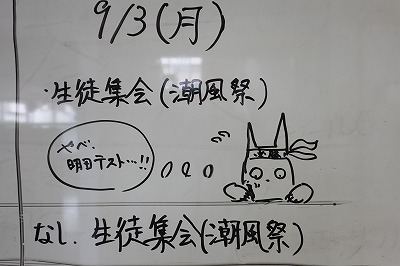 9/3(月)
・生徒集会(潮風祭)
やべ、
明日テスト…!!
必勝
なし. 生徒集会(潮風祭)